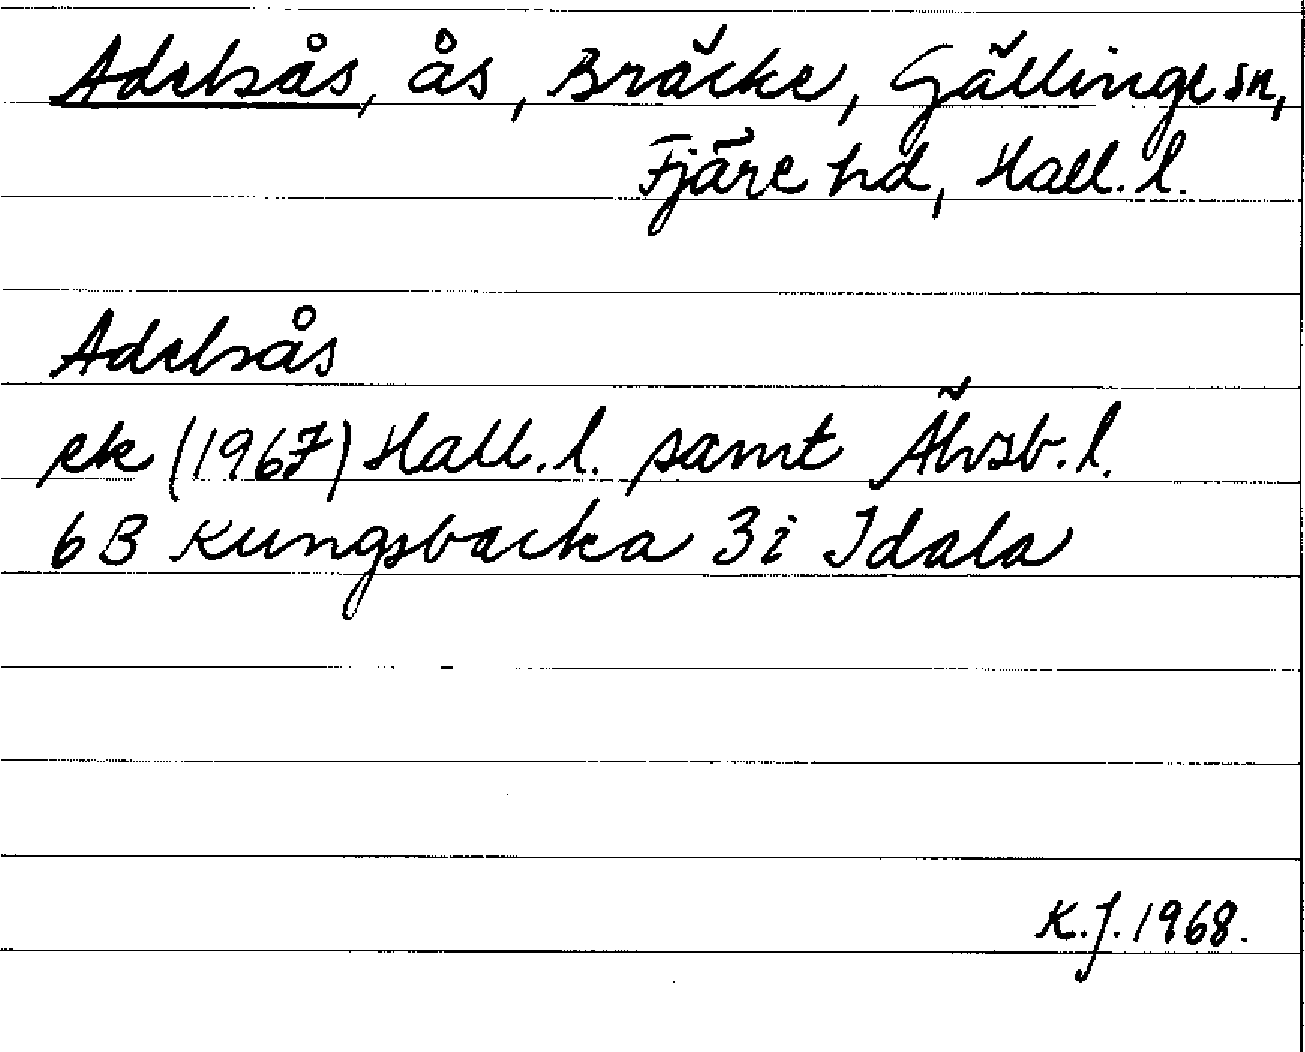 Adelsås, ås, Bräcke, Gällinge sn,
Fjäre hd, Hall. l.
Adelsås
ek (1967) Hall. l. samt Älvsb. l.
6B Kungsbacka 3i Idala
K.J. 1968.